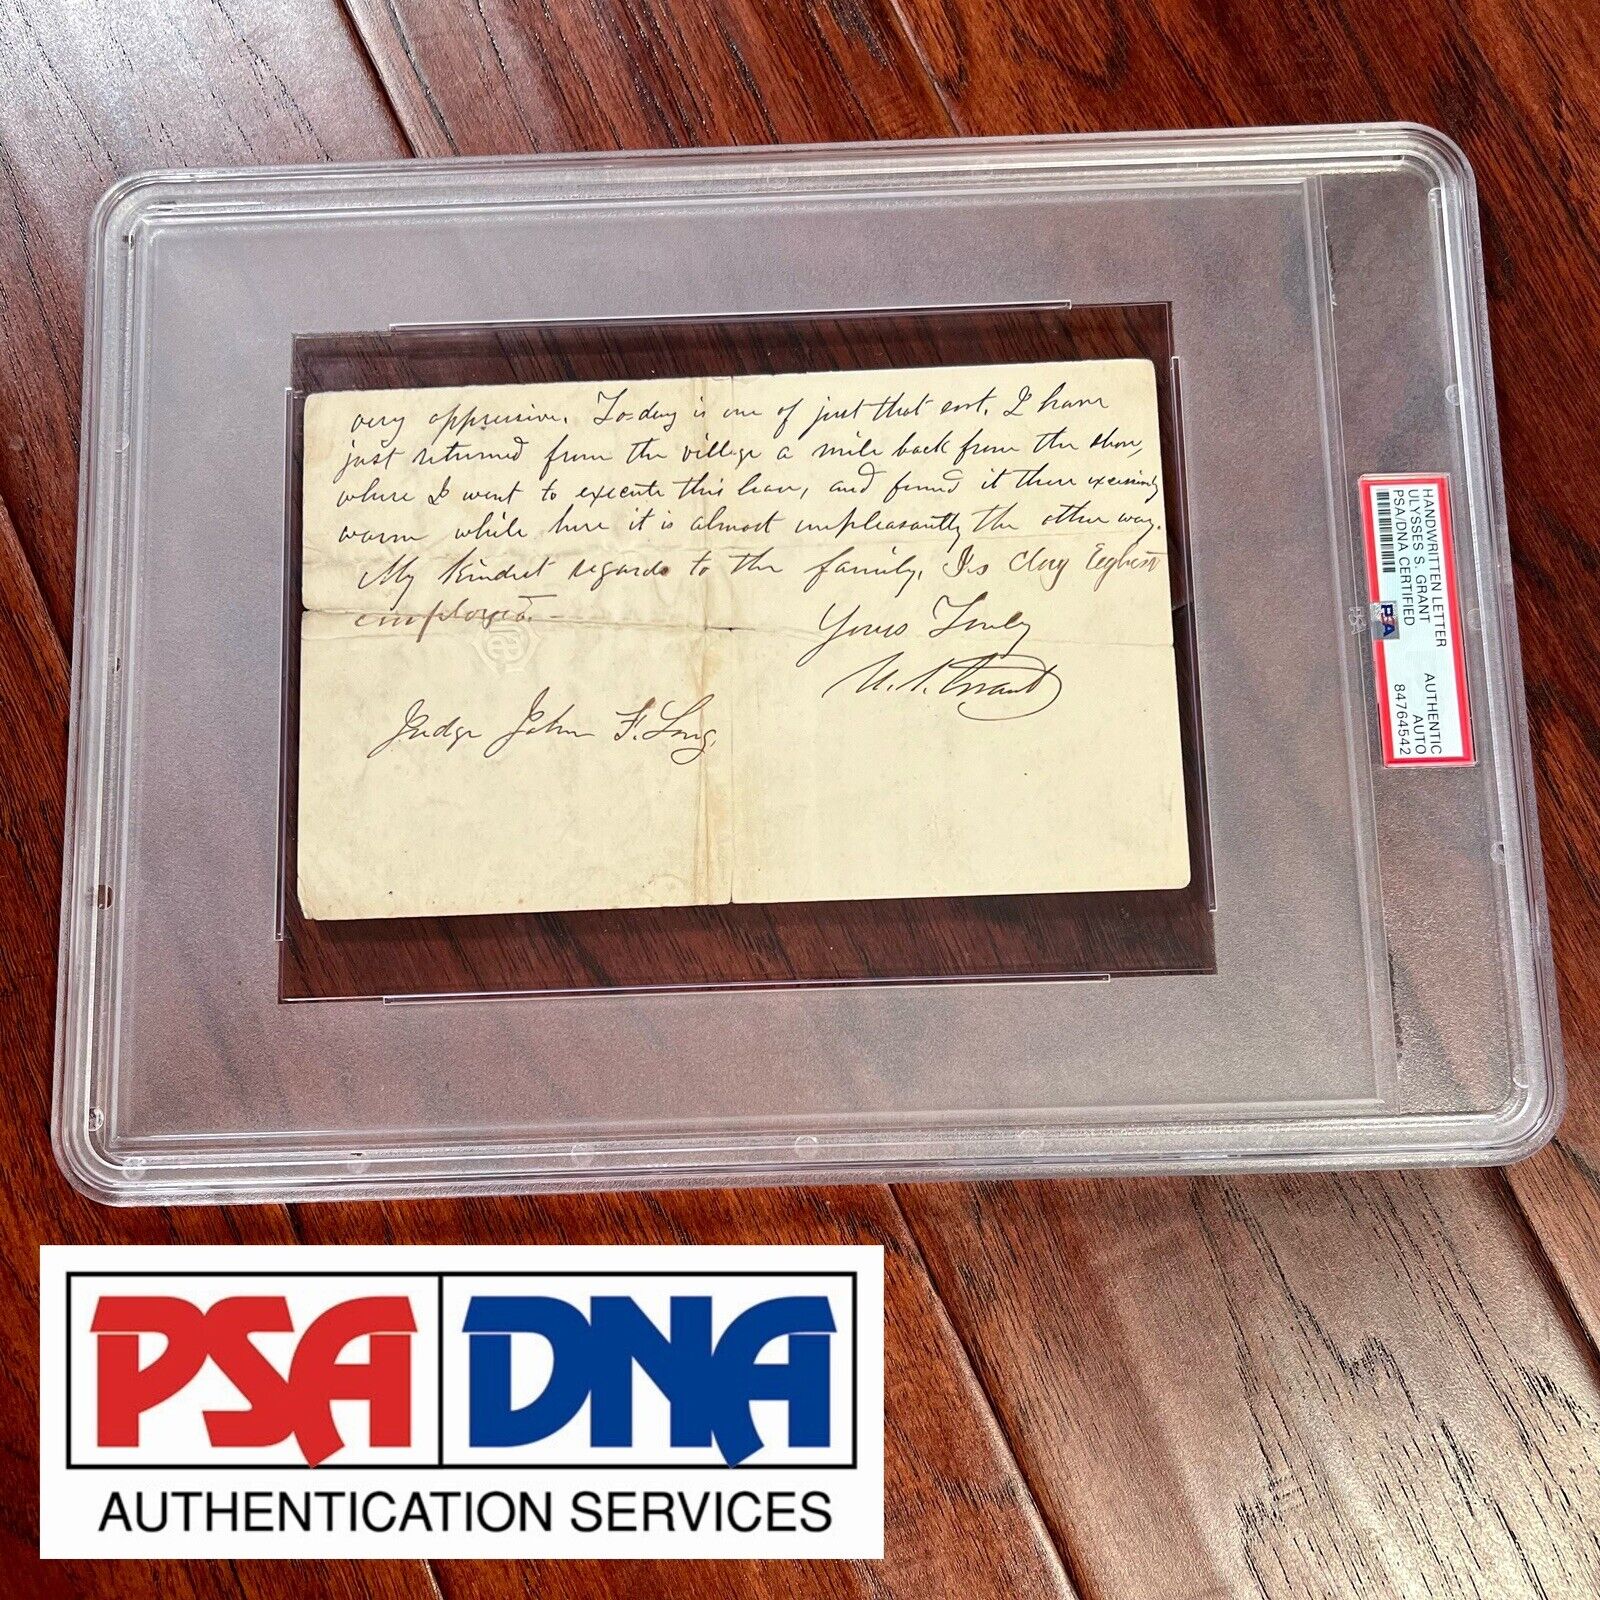 very oppressive. To-day is one of just that sort. I have
just returned from the village a mile back from the shore,
where I went to execute this lease, and found it there excessively
warm while here it is almost unpleasantly the other way.
My kindest regards to the family. Is Clay
employed.—
Yours Truly
U. S. Grant
Judge John F. Long.
HANDWRITTEN LETTER
ULYSSES S. GRANT
PSA/DNA CERTIFIED
AUTHENTIC
AUTO
84764542
PSA
PSA
PSA DNA
AUTHENTICATION SERVICES